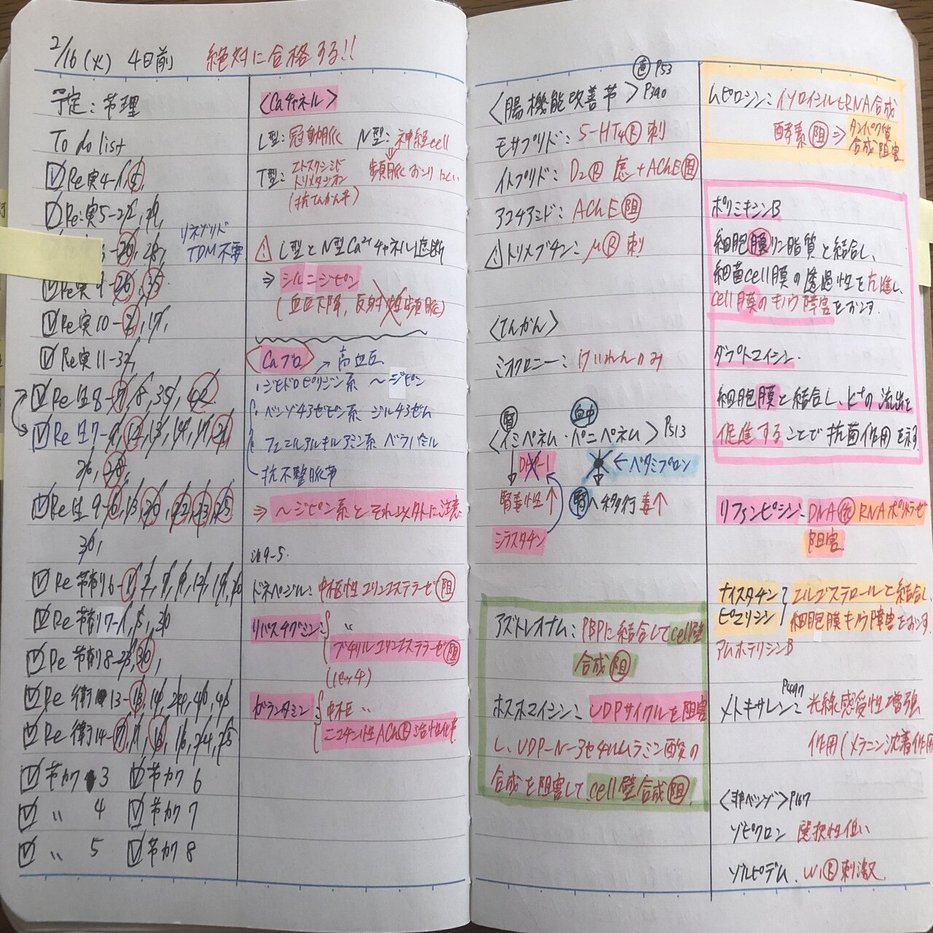 2/16(火) 4日前 絶対に合格する!!
予定:薬理
To do list
Re実4-1,5,
Re:実5-22,29,
リネゾリド
TDM不要
Re実10-2,17,
Re実11-32,
Re生8-7,8,35,42
Re生9-8,13,20,22,23,25
36,
Re薬剤7-1,5,30
Re薬剤8-23,30,
薬カワ3 薬カワ6
〃 4 薬カワ7
〃 5 薬カワ8
<Caチャネル>
L型:冠動脈 N型:神経cell
T型:エトスクシミド
トリメタジオン
(抗てんかん)
頻脈おこりにくい
⚠ L型とN型Ca²⁺チャネル遮断
⇒シルニジピン
(血圧下降, 反射性頻脈)
Caブロ → 高血圧
・ジヒドロピリジン系 〜ジピン
ベンゾチアゼピン系 ジルチアゼム
フェニルアルキルアミン系 ベラパミル
抗不整脈薬
⇒ 〜ジピン系とそれ以外に注意
治9-5.
ドネペジル:中枢性コリンエステラーゼ阻
リバスチグミン: 〃
ブチリルコリンエステラーゼ阻
(パッチ)
ガランタミン: 中枢 〃
ニコチン性AChR活性化
<腸機能改善薬> P240
P53
モサプリド:5-HT₄R刺
イトプリド:D₂R遮+AChE阻
アコチアミド:AChE阻
⚠トリメブチン:μR刺
<てんかん>
ミオクロニー:けいれんのみ
腎 血中
<イミペネム・パニペネム> P313
DHP-1 ←ベタミプロン
腎毒性↑ 腎へ移行毒↑
シラスタチン
アズトレオナム:PBPに結合してcell壁
合成阻
ホスホマイシン:UDPサイクルを阻害
し、UDP-N-アセチルムラミン酸の
合成を阻害してcell壁合成阻
ムピロシン:イソロイシルtRNA合成
酵素阻⇒タンパク質
合成阻害
ポリミキシンB
細胞膜リン脂質と結合し、
細菌cell膜の透過性を亢進し、
cell膜のキノウ障害をおこす.
ダプトマイシン.
細胞膜と結合し、K⁺の流出を
促進することで抗菌作用を示す
リファンピシン:DNA依RNAポリメラーゼ
阻害
ナイスタチン エルゴステロールと結合し、
ピマリシン 細胞膜キノウ障害をおこす.
アムホテリシンB
メトキサレン:光線感受性増強
作用(メラニン沈着作用
<非ベンゾ> P167
ゾピクロン 選択性低い
ゾルピデム. ω₁R刺激